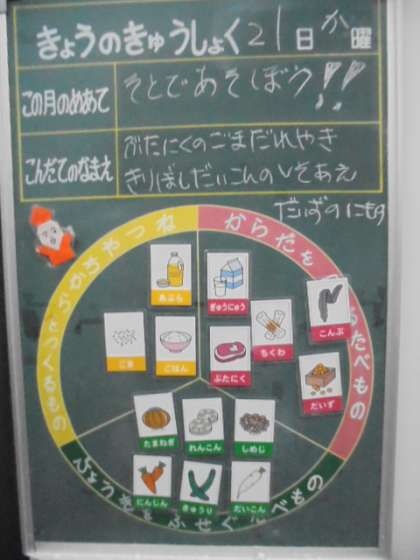 きょうのきゅうしょく 21日 か曜
この月のめあて
そとであそぼう!!
こんだてのなまえ
ぶたにくのごまだれやき
きりぼしだいこんのしそあえ
だいずのにもの
ちからやねつ
になるもの
からだを
たべもの
あぶら
ぎゅうにゅう
こんぶ
ごま
ごはん
ぶたにく
ちくわ
だいず
たまねぎ
れんこん
しめじ
にんじん
きゅうり
だいこん
びょうきをふせぐたべもの